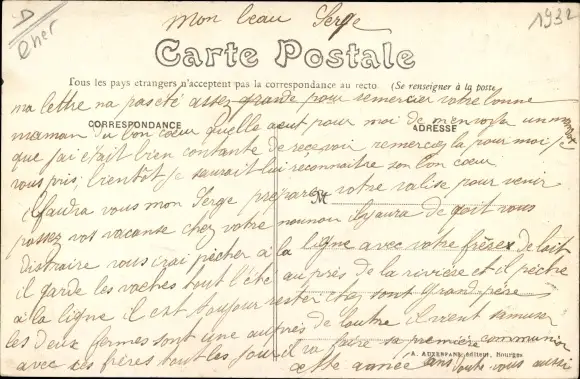 D
Cher
1932
mon beau Serge
Carte Postale
Tous les pays étrangers n'acceptent pas la correspondance au recto. (Se renseigner à la poste
ma lettre na pas été assez grande pour remercier votre bonne
CORRESPONDANCE
ADRESSE
maman du bon coeur quelle aeut pour moi de m'envoyer un
que j'ai était bien contante de recevoir remerciez la pour moi je
vous pris, bientôt je saurait lui reconnaitre son bon coeur
il faudra vous mon Serge préparer votre valise pour venir
M
passez vos vacanse chez votre nounou il y aura de quoit vous
distraire vous irai pécher à la ligne avec votre frère de lait
il garde les vaches tout l'été au près de la rivière et il pèche
à la ligne il est toujour rester chez sont grand père
les deux fermes sont une au près de l'autre il vient s'amuser
avec ses frères tout les jour il va faire sa première communion
A. AUXENFANS, éditeur, Bourges
cette année sans doute vous aussi